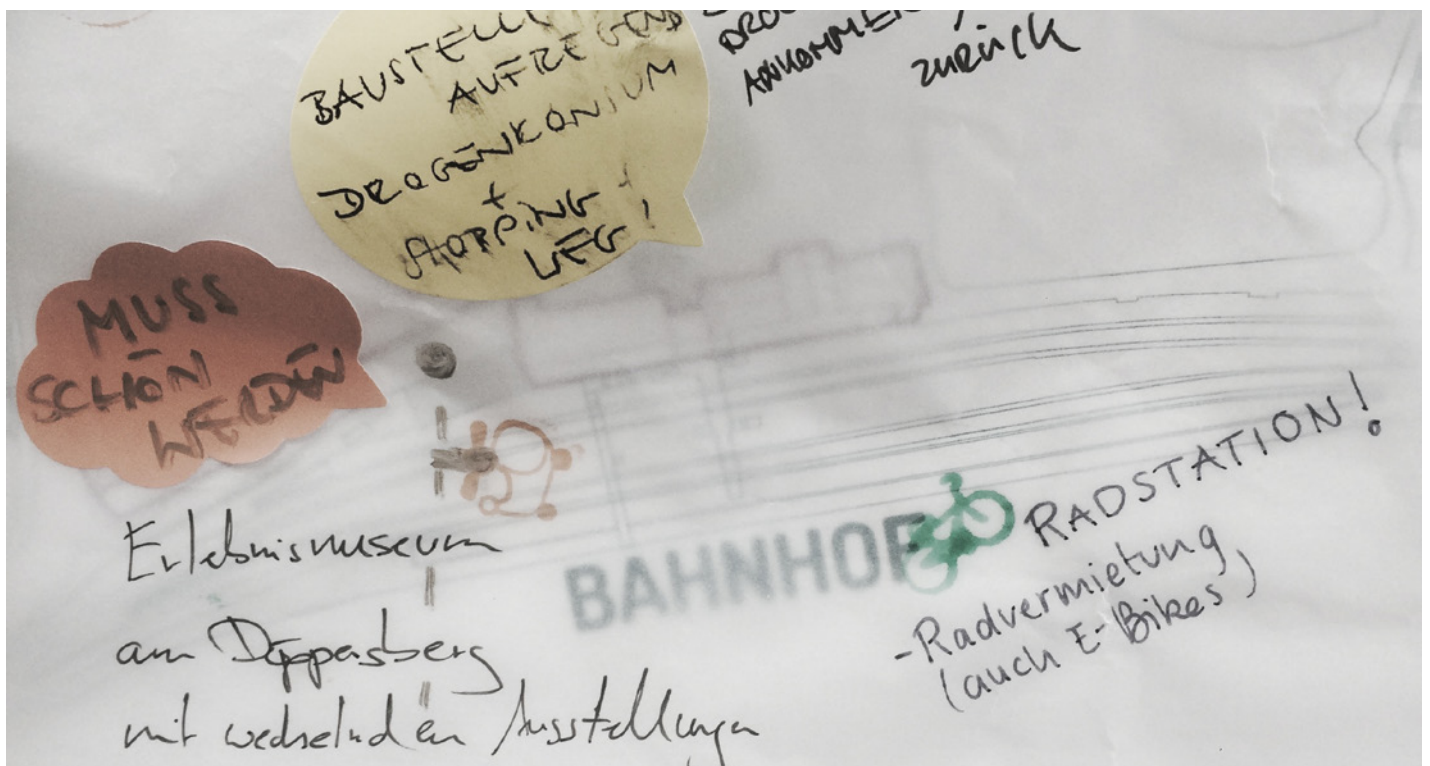 BAUSTELLE
AUFREGEND
DROGENKONSUM
+
SHOPPING
WEG!
ANKOMMEN
zurück
MUSS
SCHÖN
WERDEN
Erlebnismuseum
am Döppersberg
mit wechselnden Ausstellungen
BAHNHOF
RADSTATION!
-Radvermietung
(auch E-Bikes)